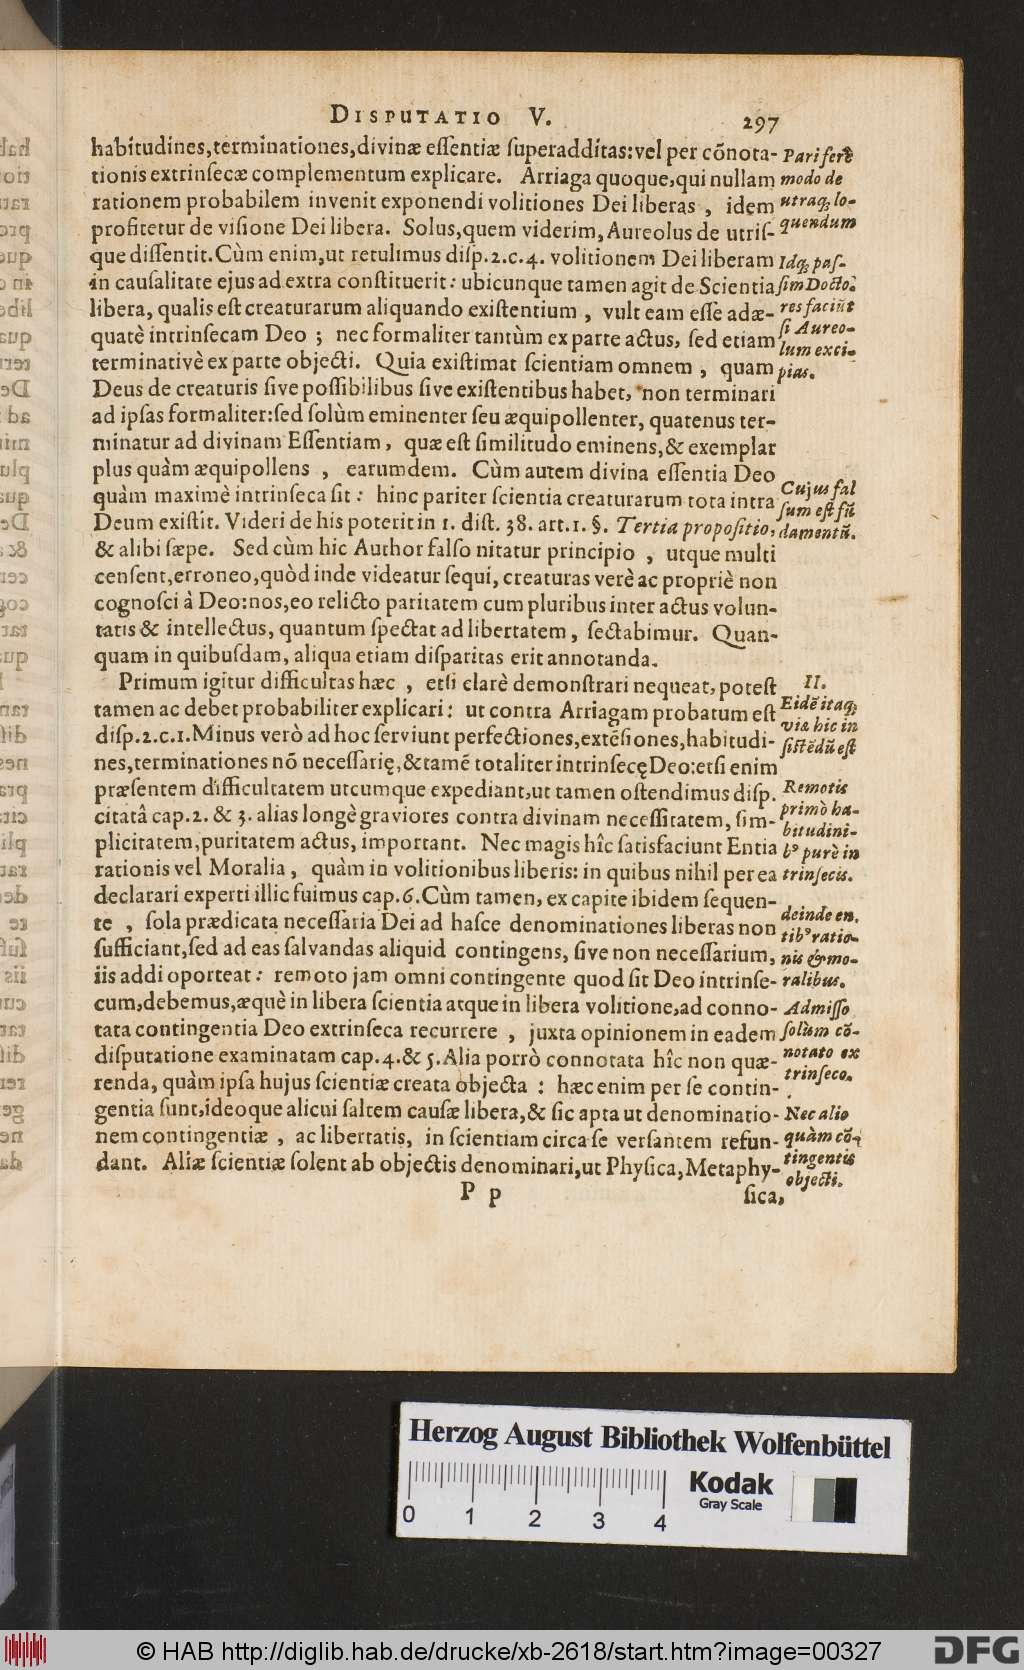 DISPUTATIO V. 297
habitudines,terminationes,divinæ eſſentiæ ſuperadditas:vel per cõnota-
tionis extrinſecæ complementum explicare. Arriaga quoque,qui nullam
rationem probabilem invenit exponendi volitiones Dei liberas , idem
profitetur de viſione Dei libera. Solus,quem viderim,Aureolus de utriſ-
que diſſentit.Cùm enim,ut retulimus diſp.2.c.4. volitionem Dei liberam
in cauſalitate ejus ad extra conſtituerit: ubicunque tamen agit de Scientia
libera, qualis eſt creaturarum aliquando exiſtentium , vult eam eſſe adæ-
quatè intrinſecam Deo ; nec formaliter tantùm ex parte actus, ſed etiam
terminativè ex parte objecti. Quia exiſtimat ſcientiam omnem , quam
Deus de creaturis ſive poſſibilibus ſive exiſtentibus habet, non terminari
ad ipſas formaliter:ſed ſolùm eminenter ſeu æquipollenter, quatenus ter-
minatur ad divinam Eſſentiam , quæ eſt ſimilitudo eminens,& exemplar
plus quàm æquipollens , earumdem. Cùm autem divina eſſentia Deo
quàm maximè intrinſeca ſit : hinc pariter ſcientia creaturarum tota intra
Deum exiſtit. Videri de his poterit in 1. diſt. 38. art.1. §. Tertia propoſitio,
& alibi ſæpe. Sed cùm hic Author falſo nitatur principio , utque multi
cenſent,erroneo,quòd inde videatur ſequi, creaturas verè ac propriè non
cognoſci à Deo:nos,eo relicto paritatem cum pluribus inter actus volun-
tatis & intellectus, quantum ſpectat ad libertatem , ſectabimur. Quan-
quam in quibuſdam, aliqua etiam diſparitas erit annotanda.
Primum igitur difficultas hæc , etſi clarè demonſtrari nequeat, poteſt
tamen ac debet probabiliter explicari: ut contra Arriagam probatum eſt
diſp.2.c.1.Minus verò ad hoc ſerviunt perfectiones,extẽſiones,habitudi-
nes,terminationes nõ neceſſarię,&tamẽ totaliter intrinſecę Deo:etſi enim
præſentem difficultatem utcumque expediant,ut tamen oſtendimus diſp.
citatâ cap.2. & 3. alias longè graviores contra divinam neceſſitatem, ſim-
plicitatem,puritatem actus, important. Nec magis hîc ſatisfaciunt Entia
rationis vel Moralia , quàm in volitionibus liberis: in quibus nihil per ea
declarari experti illic fuimus cap.6.Cùm tamen, ex capite ibidem ſequen-
te , ſola prædicata neceſſaria Dei ad haſce denominationes liberas non
ſufficiant,ſed ad eas ſalvandas aliquid contingens, ſive non neceſſarium,
iis addi oporteat : remoto jam omni contingente quod ſit Deo intrinſe-
cum,debemus,æquè in libera ſcientia atque in libera volitione,ad conno-
tata contingentia Deo extrinſeca recurrere , juxta opinionem in eadem
diſputatione examinatam cap.4.& 5.Alia porrò connotata hîc non quæ-
renda, quàm ipſa hujus ſcientiæ creata objecta : hæc enim per ſe contin-
gentia ſunt,ideoque alicui ſaltem cauſæ libera,& ſic apta ut denominatio-
nem contingentiæ , ac libertatis, in ſcientiam circa ſe verſantem refun-
dant. Aliæ ſcientiæ ſolent ab objectis denominari,ut Phyſica,Metaphy-
P p ſica,
Pari ferè
modo de
utraq; lo-
quendum
Idq; paſ-
ſim Docto-
res faciũt
ſi Aureo-
lum exci-
pias.
Cujus fal
ſum eſt fũ
damentũ.
II.
Eidẽ itaq;
viæ hic in
ſiſtẽdũ eſt
Remotis
primò ha-
bitudini-
bꝰ purè in
trinſecis.
deinde en.
tibꝰ ratio-
nis & mo-
ralibus.
Admiſſo
ſolùm cõ-
notato ex
trinſeco.
Nec alio
quàm cõ-
tingentis
objecti.
Herzog August Bibliothek Wolfenbüttel
Kodak
Gray Scale
0 1 2 3 4
© HAB http://diglib.hab.de/drucke/xb-2618/start.htm?image=00327
DFG